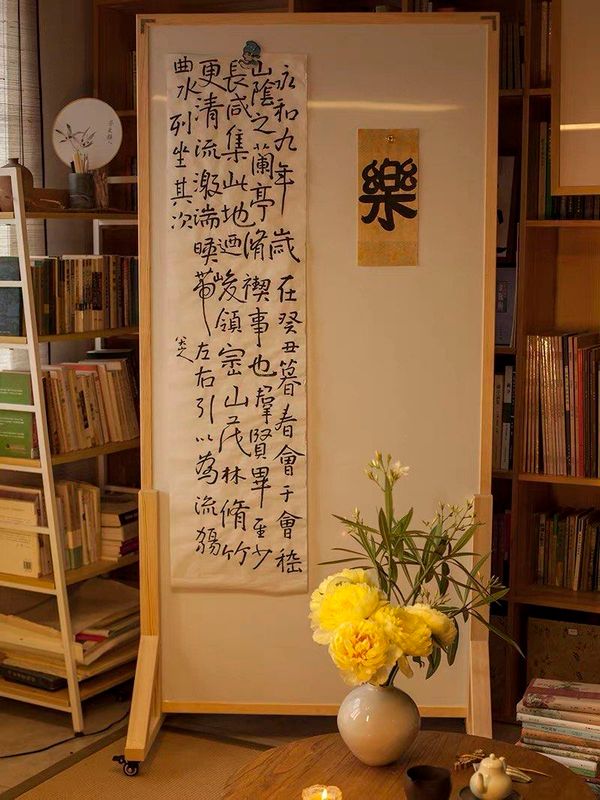 永和九年歲在癸丑暮春會于會稽
山陰之蘭亭脩禊事也羣賢畢至少
長咸集此地迺峻領崇山茂林脩竹
更清流激湍暎帶左右引以為流觴
曲水列坐其次
樂